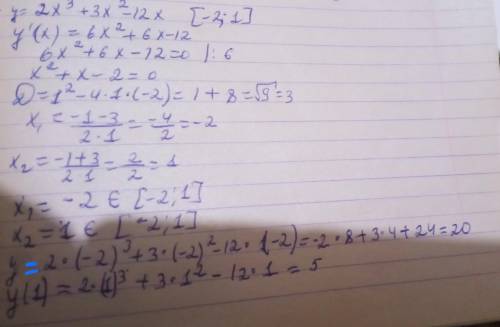 y = 2x³ + 3x² - 12x [-2; 1]
y'(x) = 6x² + 6x - 12
6x² + 6x - 12 = 0 |: 6
x² + x - 2 = 0
D = 1² - 4 · 1 · (-2) = 1 + 8 = √9 = 3
x₁ = (-1 - 3)/(2 · 1) = -4/2 = -2
x₂ = (-1 + 3)/(2 · 1) = 2/2 = 1
x₁ = -2 ∈ [-2; 1]
x₂ = 1 ∈ [-2; 1]
y = 2 · (-2)³ + 3 · (-2)² - 12 · (-2) = -2 · 8 + 3 · 4 + 24 = 20
y(1) = 2 · (1)³ + 3 · 1² - 12 · 1 = 5